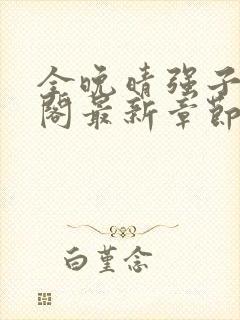 全晚晴强子
阁最新章节
白堇念